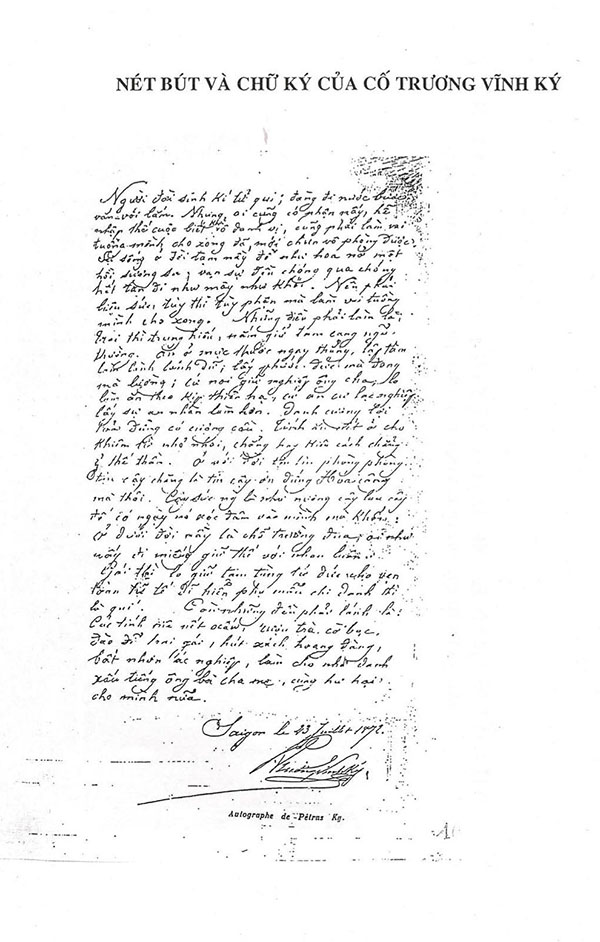 NÉT BÚT VÀ CHỮ KÝ CỦA CỐ TRƯƠNG VĨNH KÝ
Người đời sinh kí tử qui; đàng đi nước bước
vắn vỏi lắm. Nhưng ai cũng có phận nấy, hễ
nhập thế cuộc bất khả vô danh vị, cũng phải làm vai
tuồng mình cho xong đã, mới chun vô phòng được.
Sự sống ở đời tạm nầy đỗ như hoa nở một
hồi, sương sa; vạn sự đều chóng qua chóng
hết tan đi như mây như khói. Nên phải
liệu sức, tùy thì tùy phận mà làm vai tuồng
mình cho xong. Những điều phải làm là:
Trai thì trung hiếu, nắm giữ tam cang ngũ
thường. Ăn ở mực thước ngay thẳng, lập tâm
lánh dữ; lấy phước đức mà đong
mà lường; cứ noi giữ nghiệp ông cha, lo
làm ăn theo kịp thiên hạ, cứ an cư lạc nghiệp
lấy sự an nhàn làm hơn. Danh cương lợi
toả đừng có cưỡng cầu. Tánh ở cho
khiêm nhỏ nhoi, chẳng hay
thế thần. Ở với đời tin phòng
tin cậy chẳng là tin cậy ơn đấng Hóa công
mà thôi. Cậy sức người là như nương cây lau cây
đổ có ngày nó xóc đâm vào mình mà khốn.
Ở dưới đời nầy là chỗ trường đua, ai như
nấy đi miễng giữ thế với nhơn luân.
Gái thì lo giữ tam tùng tứ đức cho vẹn
toàn
là quí. Còn những điều phải lánh là:
Cúc tính nết xấu, rượu trà, cờ bạc,
đào đĩ trai gái, hút xách hoang đàng,
bất nhơn ác nghiệp, làm cho nhơ danh
xấu tiếng ông bà cha mẹ, cùng hư hại
cho mình nữa.
Saigon le 23 Juillet 1872.
Trương Vĩnh Ký
Autographe de Pétrus Ky.